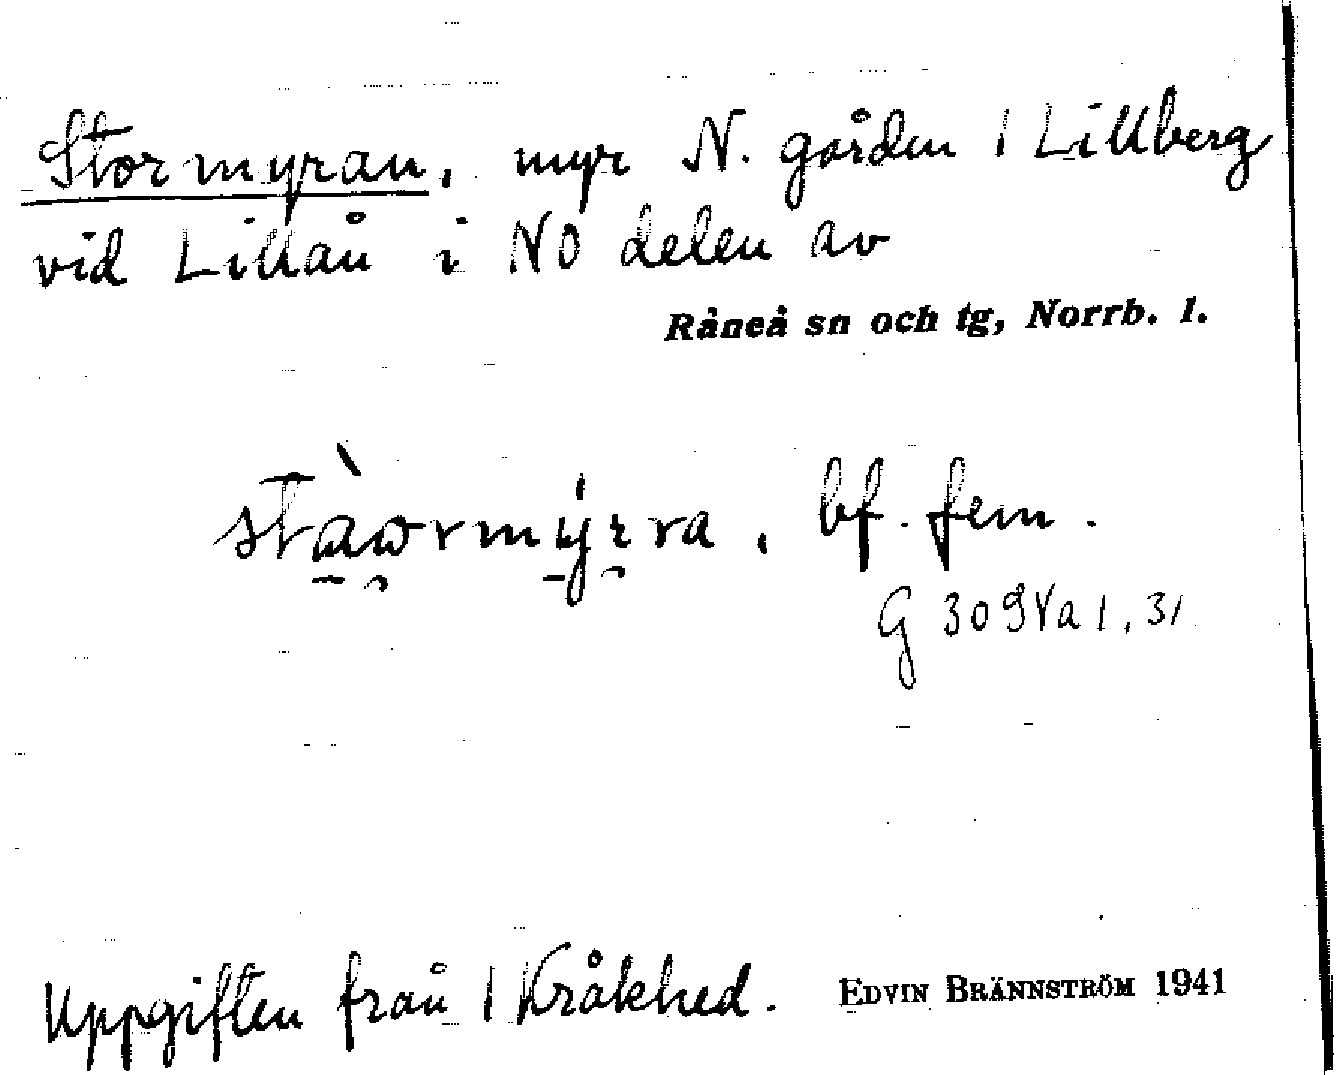 Stormyran, myr N. gården 1 Lillberg
vid Lillån i NO delen av
Råneå sn och tg, Norrb. l.
bf. fem.
G 309Va1,31
Uppgiften från 1 Kråkhed.
EDVIN BRÄNNSTRÖM 1941